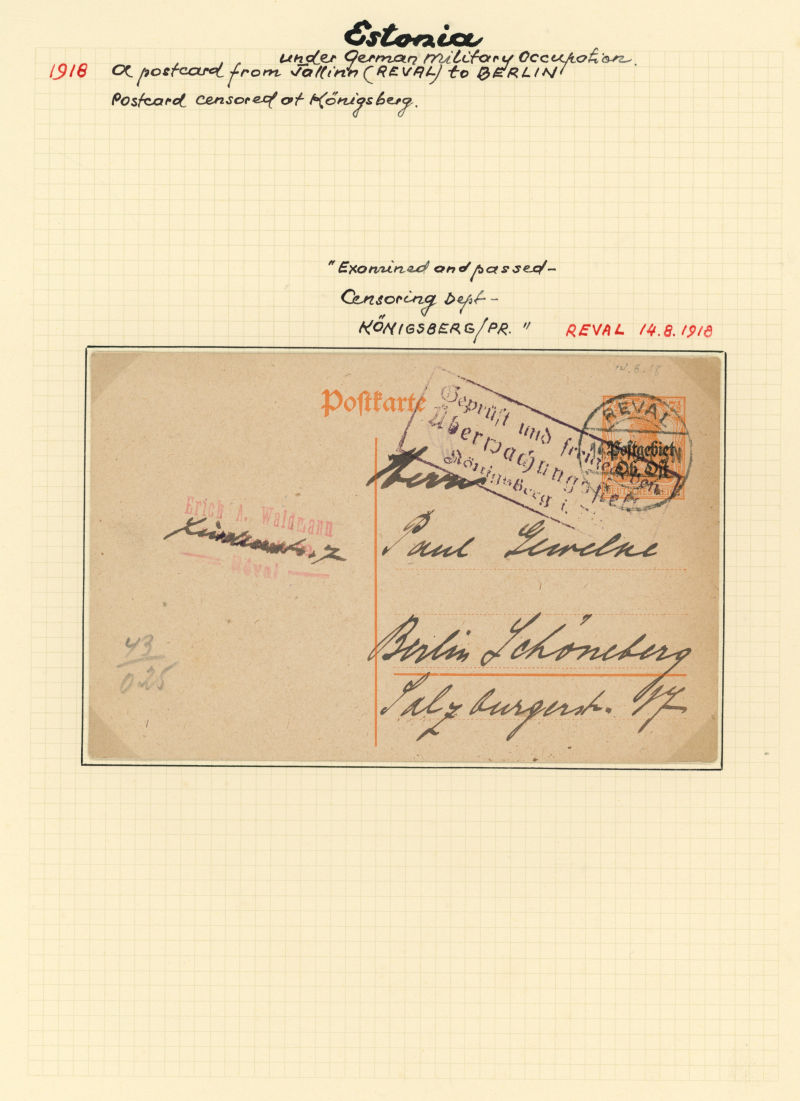 Estonia
under German military Occupation.
1918 a postcard from Tallinn (REVAL) to BERLIN
Postcard censored at Königsberg.
"Examined and passed-
Censoring Dept-
KÖNIGSBERG/PR." REVAL 14.8.1918
Postkarte
Geprüft und freizugeben.
Überwachungsstelle
Königsberg i.
REVAL
Postgebiet
Ob. Ost
Herrn
Erich A. Waldmann
Reval
Paul Gewelke
Berlin Schöneberg
Salzburgerstr. 17
43
025